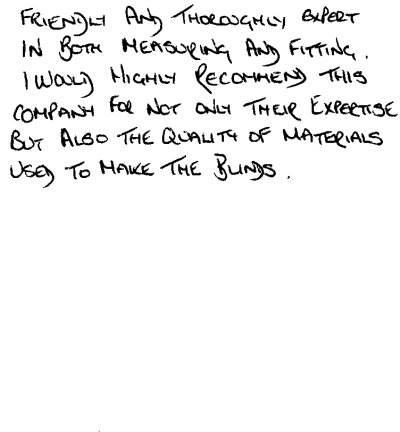 FRIENDLY AND THOROUGHLY EXPERT
IN BOTH MEASURING AND FITTING.
I WOULD HIGHLY RECOMMEND THIS
COMPANY FOR NOT ONLY THEIR EXPERTISE
BUT ALSO THE QUALITY OF MATERIALS
USED TO MAKE THE BLINDS.